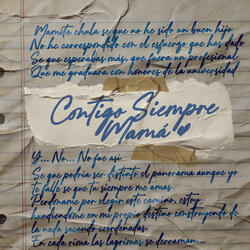 Mamita chula se que no he sido un buen hijo
No he correspondido con el esfuerzo que has dado
Se que esperabas más, que fuera un profesional
Que me graduara con honores de la universidad
Contigo Siempre
Mamá
Y... No... No fue asi
Se que podría ser distinto el panorama aunque yo
te falle se que tu siempre me amas
Perdoname por elegir este camino, estoy
hundiendome en mi propio destino construyendo de
la nada sacando coordenadas.
En cada rima las lagrimas se derraman...